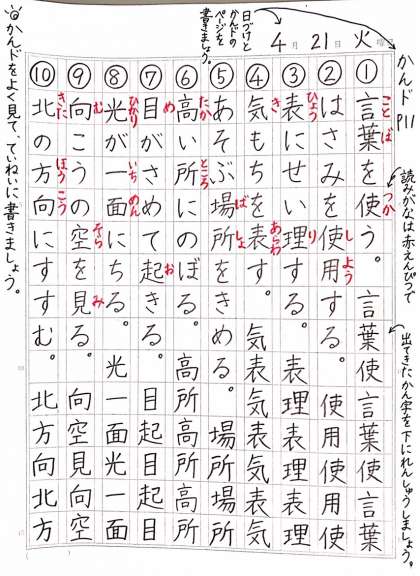 かんド P11
4月21日火曜日
日づけと
かんドの
ページを
書きましょう。
読みがなは赤えんぴつで
出てきたかん字を下にれんしゅうしましょう。
①言葉を使う。言葉使言葉使言葉
ことば つか
②はさみを使用する。使用使用使
しよう
③表にせい理する。表理表理表理
ひょう り
④気もちを表す。気表気表気表気
き あらわ
⑤あそぶ場所をきめる。場所場所
ばしょ
⑥高い所にのぼる。高所高所高所
たか ところ
⑦目がさめて起きる。目起目起目
め お
⑧光が一面にちる。光一面光一面
ひかり いちめん
⑨向こうの空を見る。向空見向空
む そら み
⑩北の方向にすすむ。北方向北方
きた ほうこう
かんドをよく見て、ていねいに書きましょう。